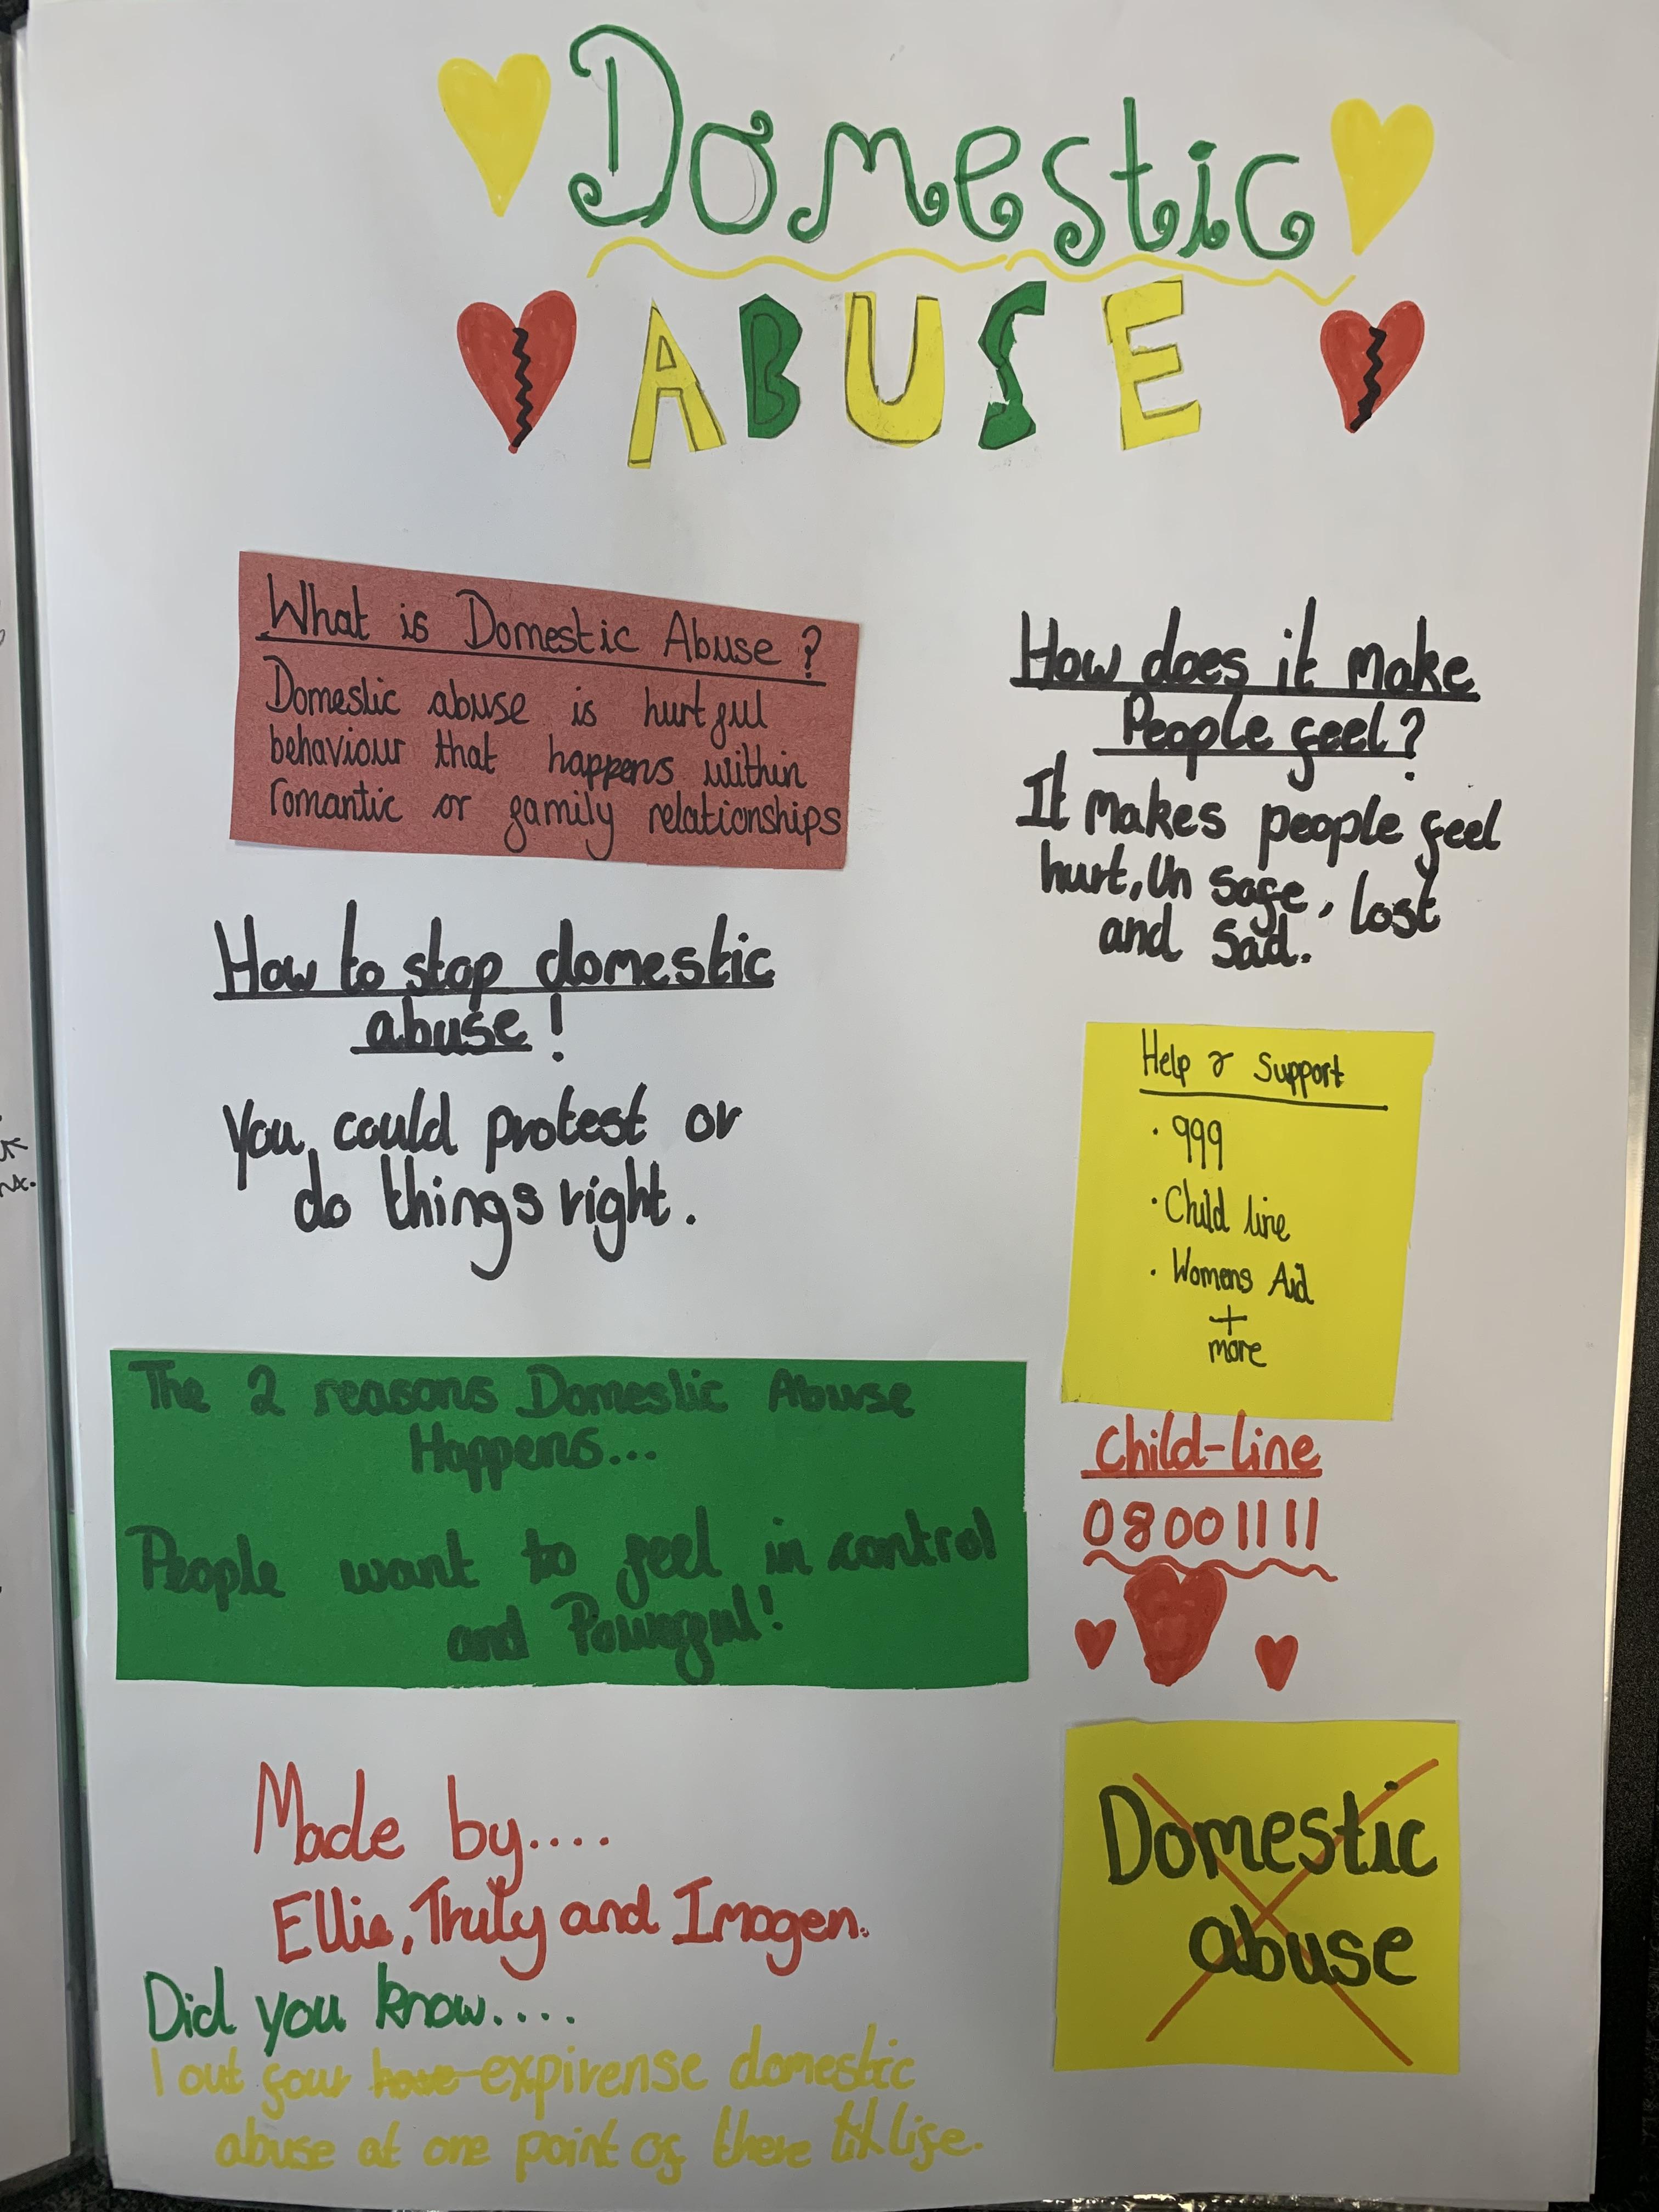 Domestic
ABUSE
What is Domestic Abuse?
Domestic abuse is hurtful
behaviour that happens within
romantic or family relationships
How does it make
People feel?
It makes people feel
hurt, Un safe, lost
and sad.
How to stop domestic
abuse!
You could protest or
do things right.
Help & Support
· 999
· Child line
· Womens Aid
+
more
The 2 reasons Domestic Abuse
Happens...
People want to feel in control
and Powerful!
Child-line
08001111
Made by....
Ellie, Truly and Imogen.
Domestic
abuse
Did you know....
1 out four have expirense domestic
abuse at one point of there life.